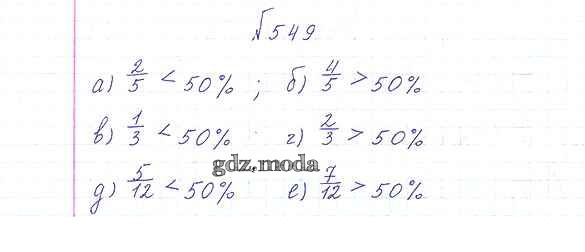 №549
а) 2/5 < 50% ; б) 4/5 > 50%
в) 1/3 < 50% г) 2/3 > 50%
gdz.moda
д) 5/12 < 50% е) 7/12 > 50%